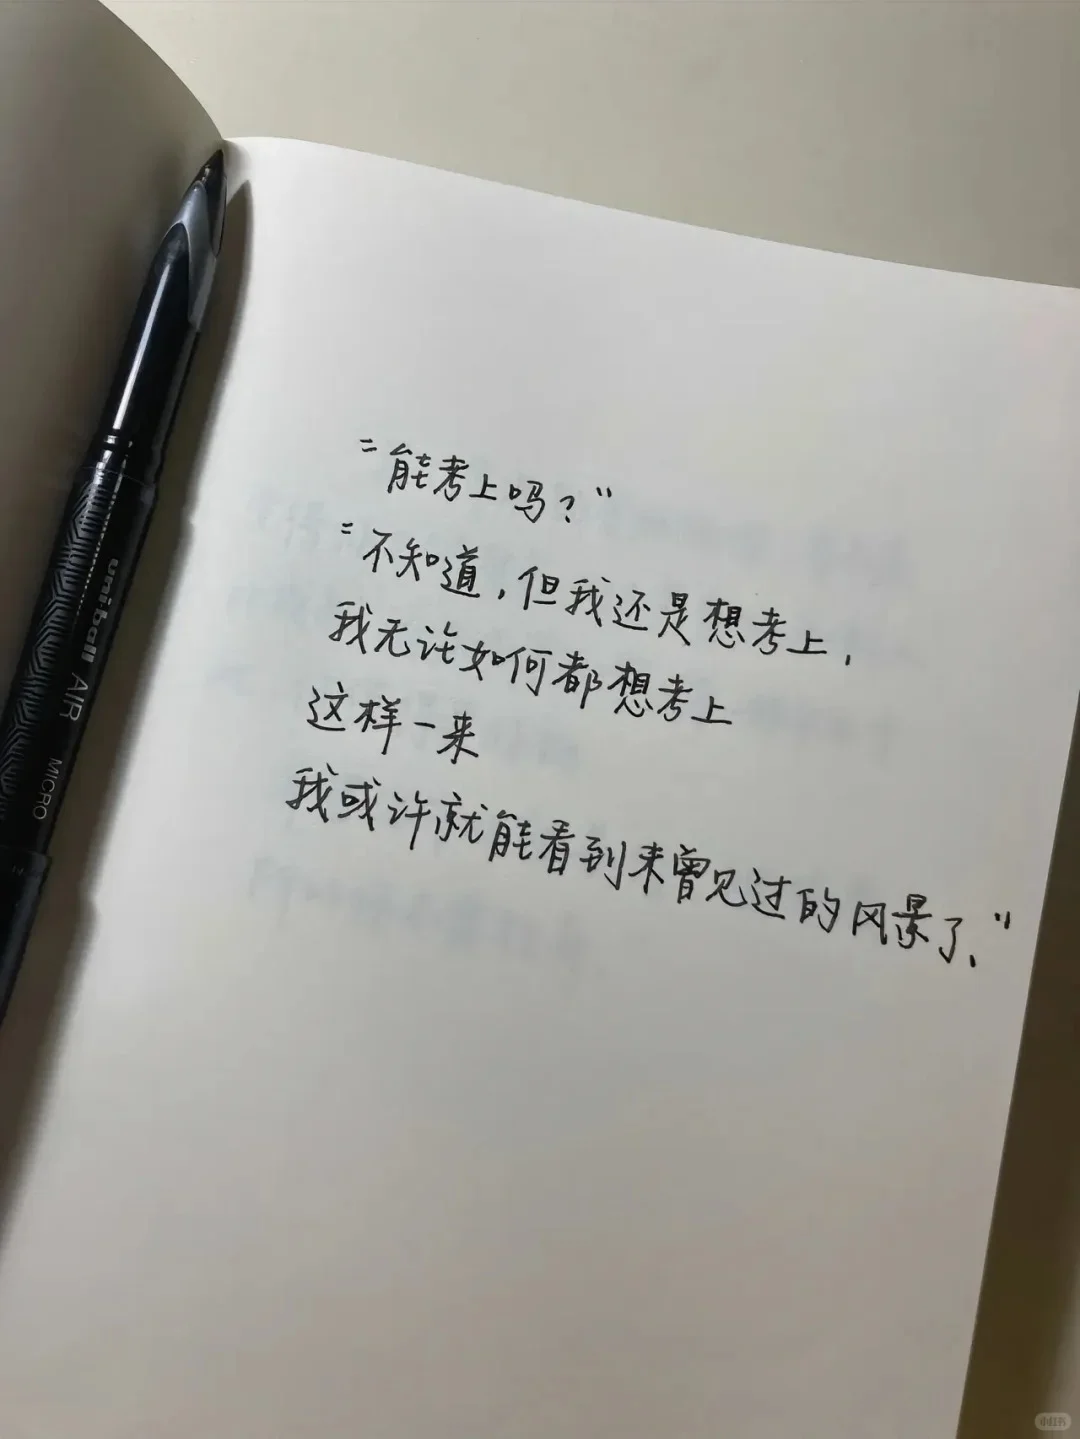 “能考上吗？”
“不知道，但我还是想考上，
我无论如何都想考上
这样一来
我或许就能看到未曾见过的风景了、”
uniball AIR MICRO
小红书